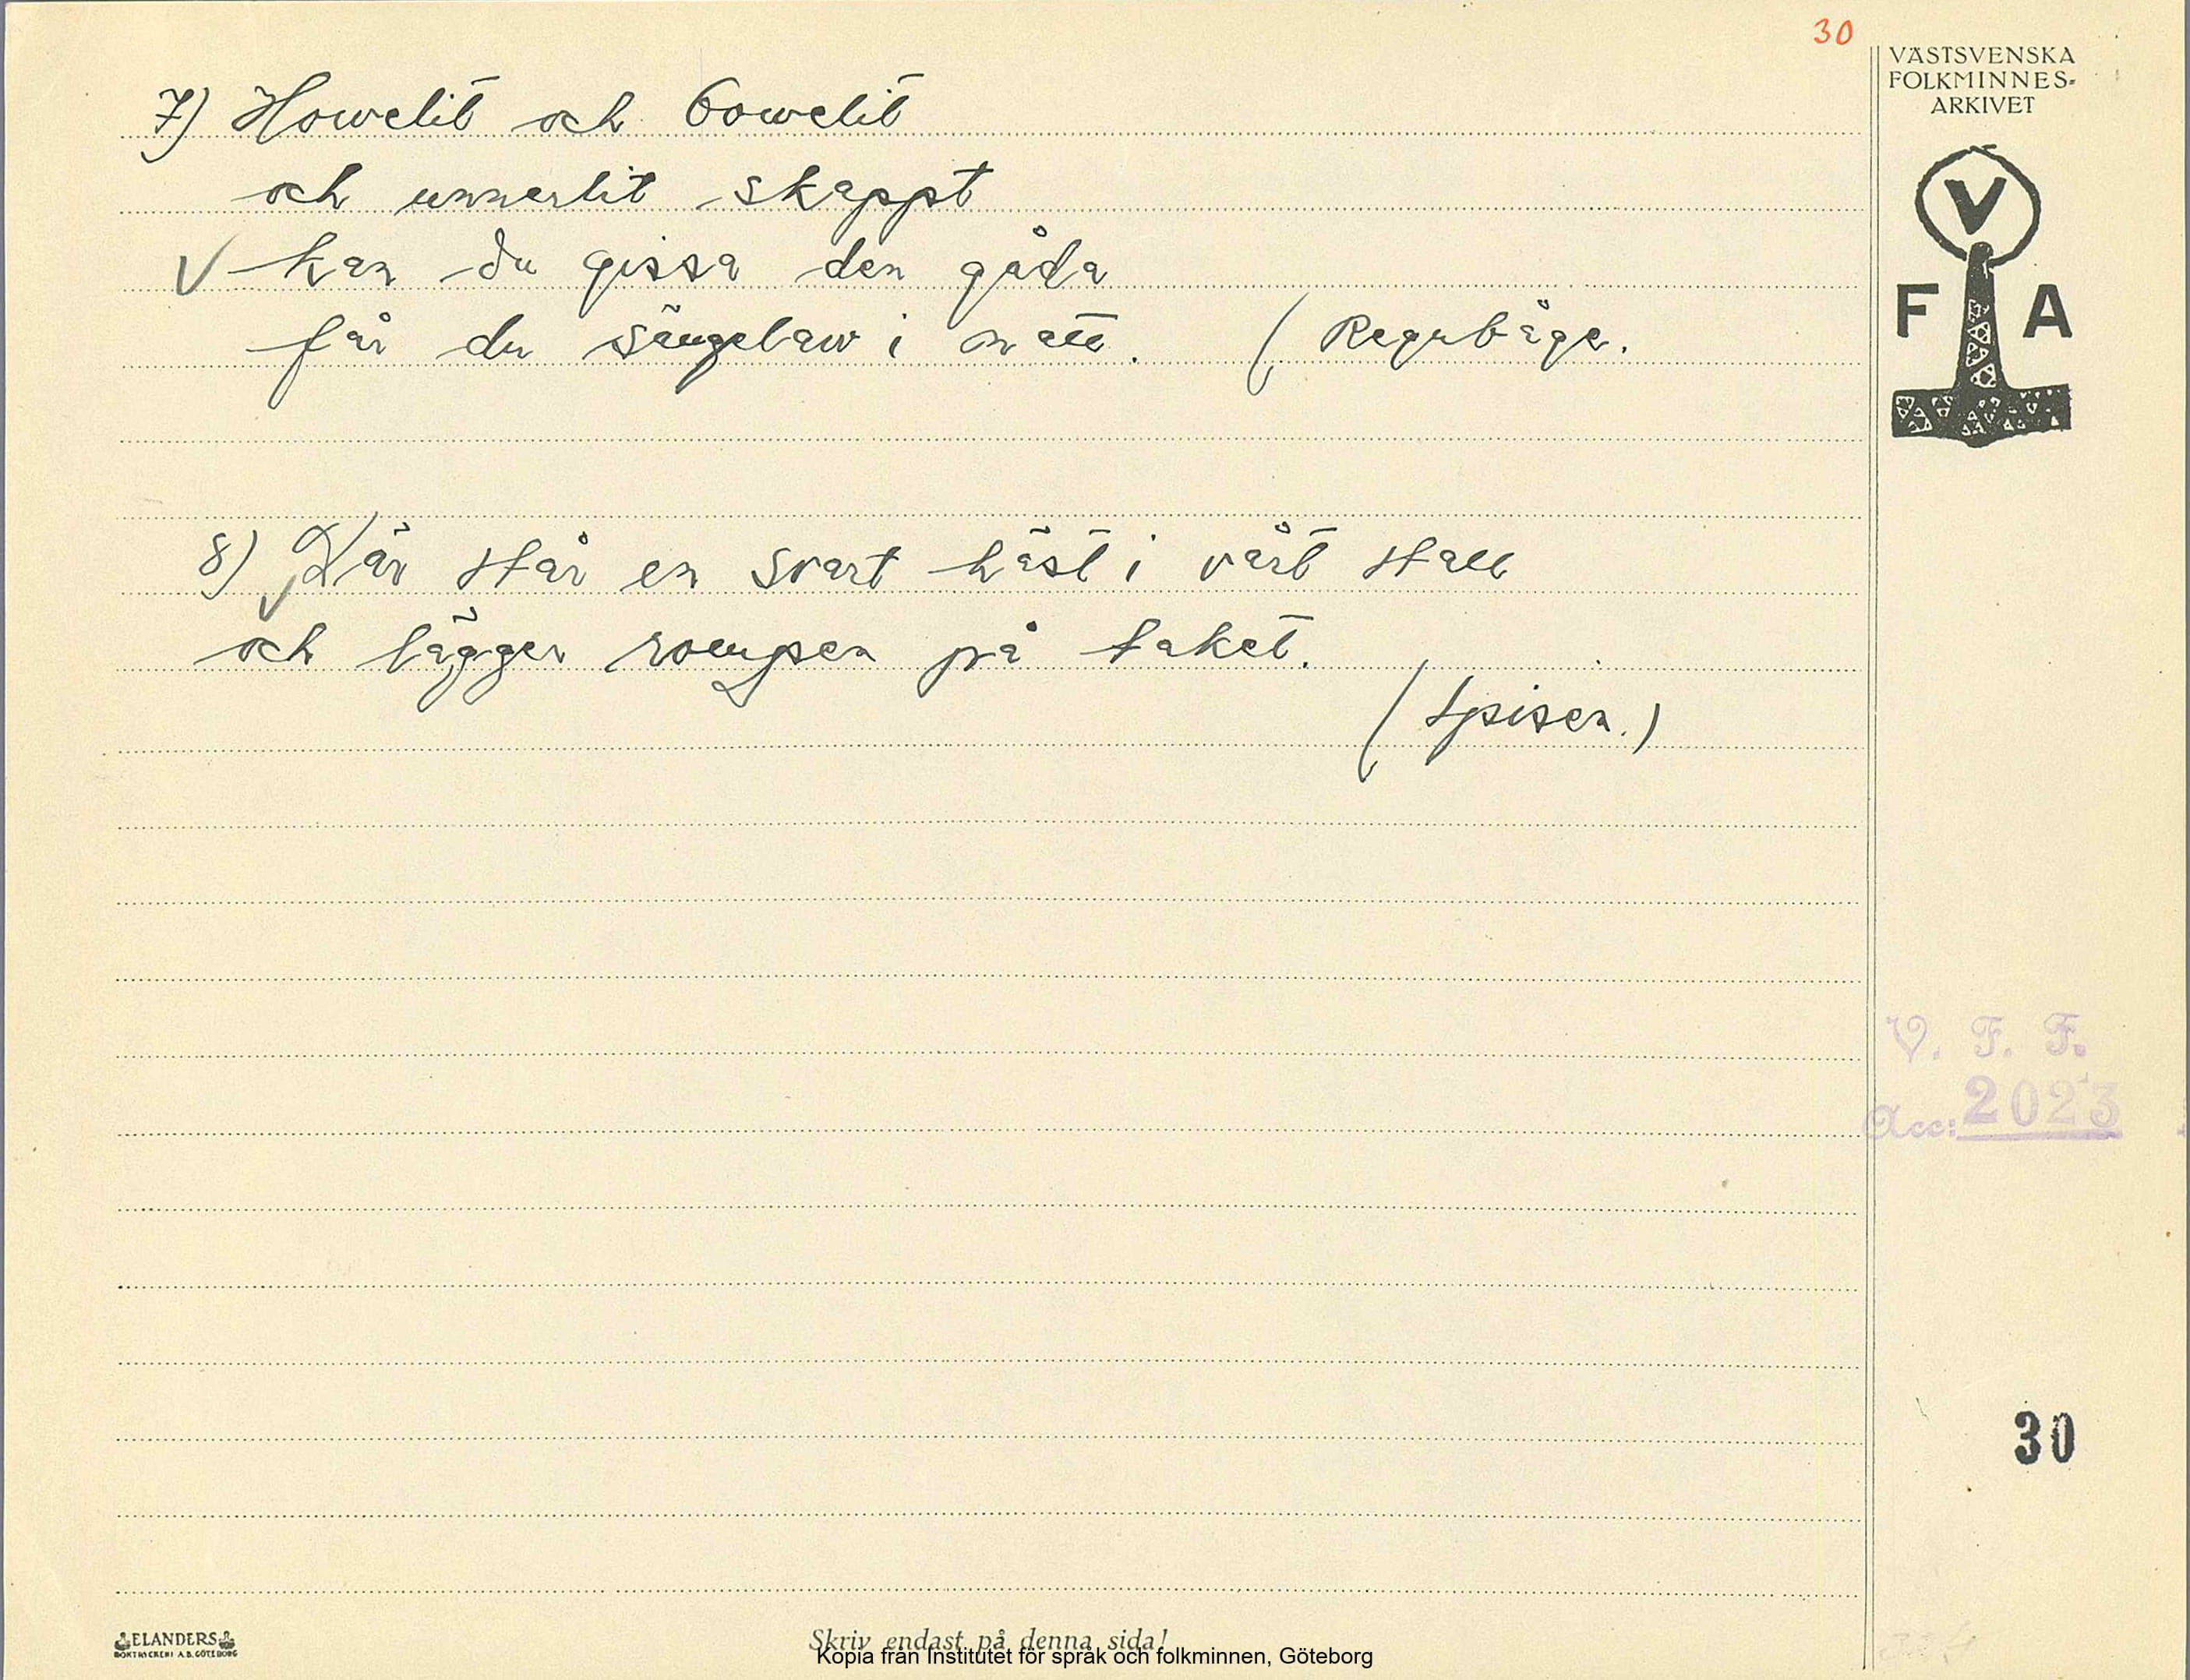 30
VÄSTSVENSKA
FOLKMINNES-
ARKIVET
V
F A
7) Howelit och bowelit
och unnerlit skappt
kan du gissa den gåda
får du sängelaw i natt. (Regnbåge.
8) Där står en svart häst i vårt stall
och lägger rompen på taket.
(Spisen.)
V. F. F.
Acc: 2023
30
ELANDERS
BOKTRYCKERI A.B. GÖTEBORG
Skriv endast på denna sida!
Kopia från Institutet för språk och folkminnen, Göteborg